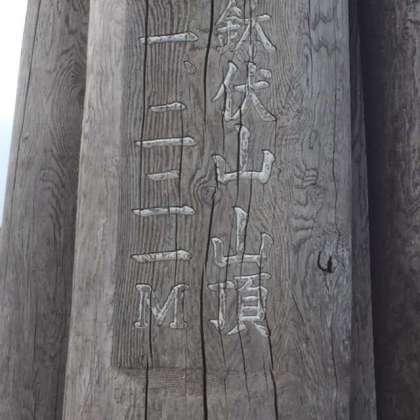 鉢伏山山頂
一、二二一M